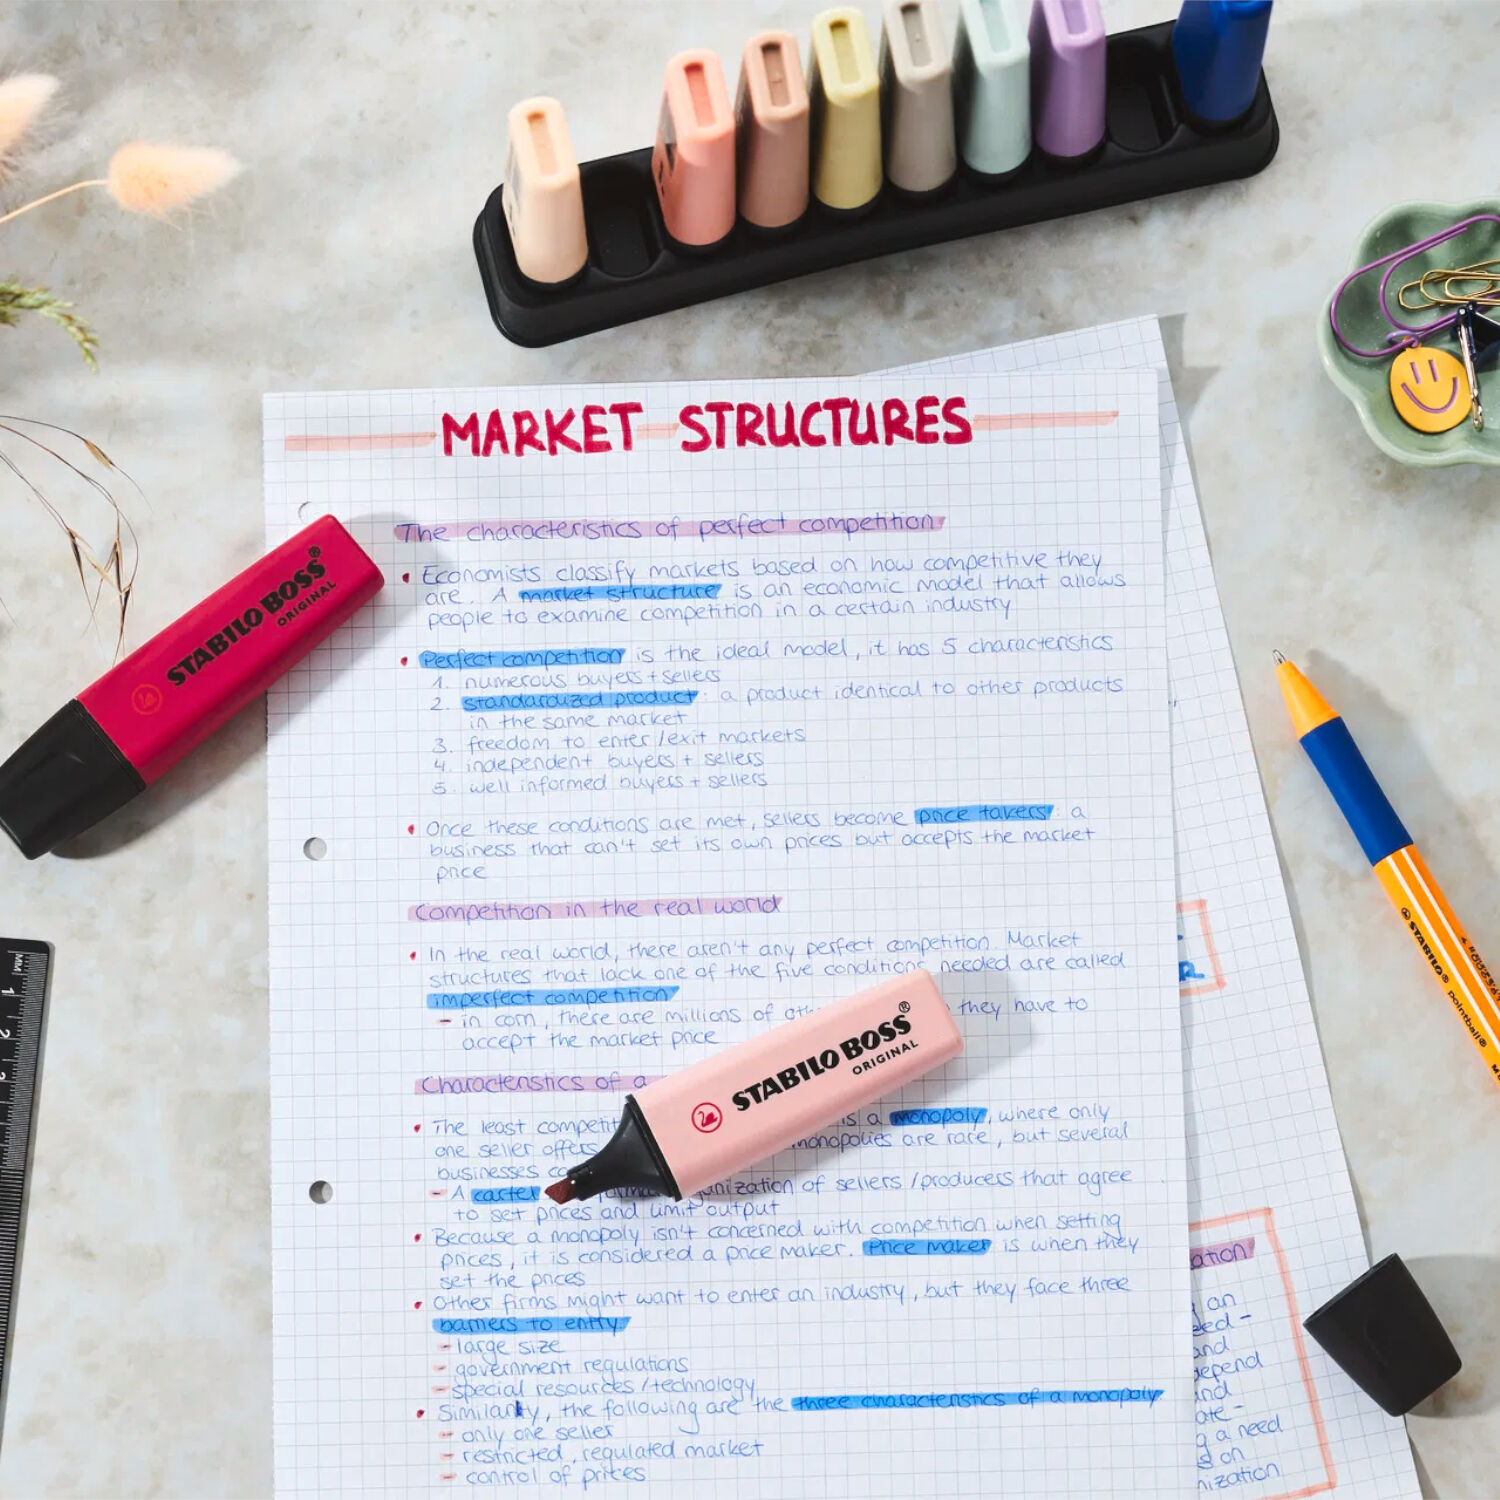 MARKET STRUCTURES
The characteristics of perfect competition
Economists classify markets based on how competitive they
are. A market structure is an economic model that allows
people to examine competition in a certain industry
Perfect competition is the ideal model, it has 5 characteristics
1. numerous buyers + sellers
2. standardized product: a product identical to other products
in the same market
3. freedom to enter/exit markets
4. independent buyers + sellers
5. well informed buyers + sellers
Once these conditions are met, sellers become price takers: a
business that can't set its own prices but accepts the market
price
Competition in the real world
In the real world, there aren't any perfect competition. Market
structures that lack one of the five conditions needed are called
imperfect competition
- in corn, there are millions of they have to
accept the market price
Characteristics of a
The least competit is a monopoly, where only
one seller offers monopolies are rare, but several
businesses
- A cartel organization of sellers/producers that agree
to set prices and limit output
Because a monopoly isn't concerned with competition when setting
prices, it is considered a price maker. Price maker is when they
set the prices
Other firms might want to enter an industry, but they face three
barriers to entry:
- large size
- government regulations
- special resources/technology
Similarly, the following are the three characteristics of a monopoly
- only one seller
- restricted, regulated market
- control of prices
STABILO BOSS®
ORIGINAL
STABILO BOSS®
ORIGINAL
STABILO® pointball®
MM
1
2
R
ation
an
and
depend
and
ate-
g a need
on
nization